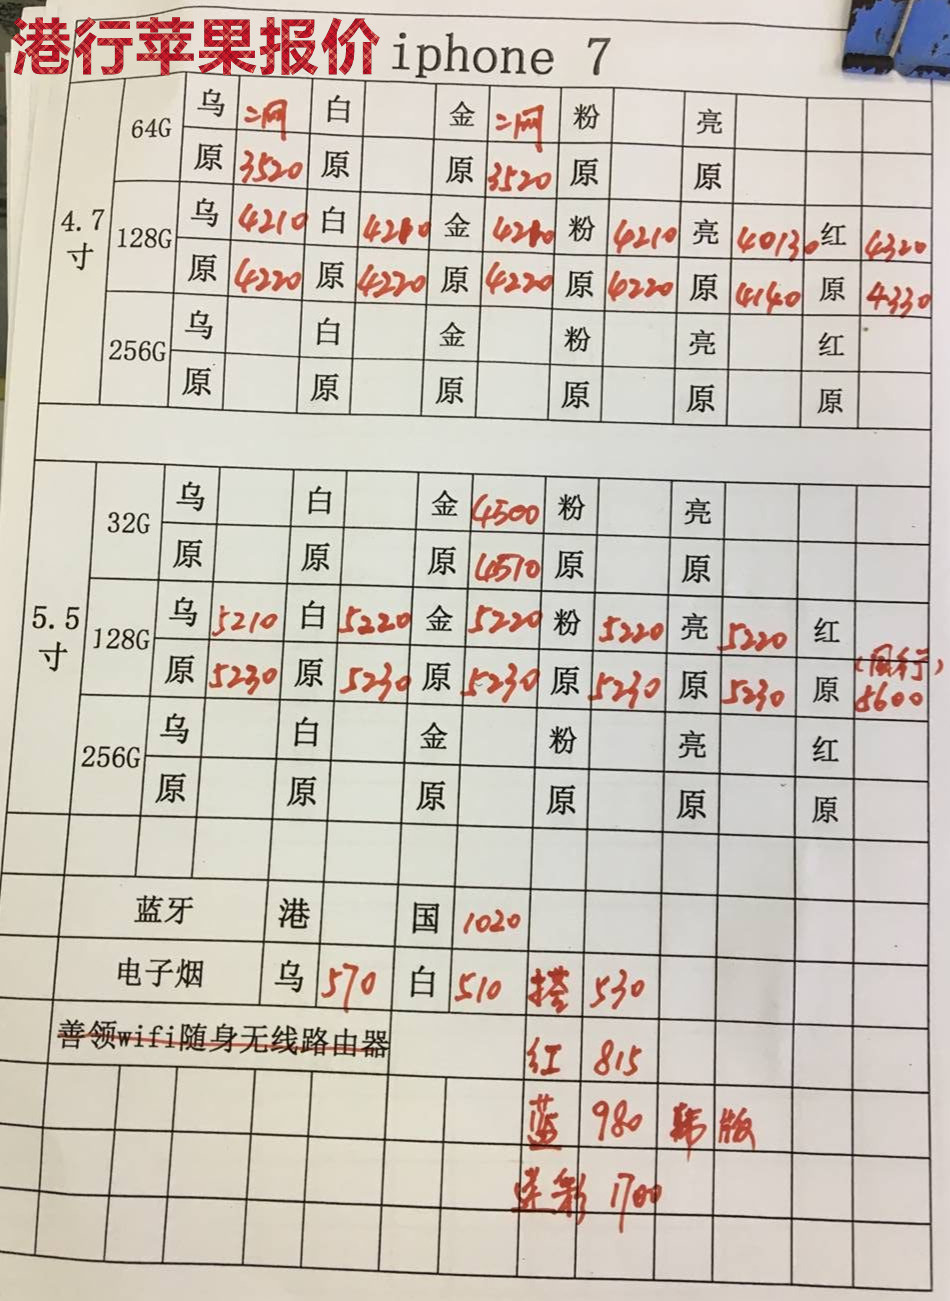 港行苹果报价 iphone 7
4.7寸
64G 乌 二网 白 金 二网 粉 亮
原 3520 原 原 3520 原 原
128G 乌 4210 白 4210 金 4210 粉 4210 亮 40130 红 4320
原 4220 原 4220 原 4220 原 4220 原 4140 原 4330
256G 乌 白 金 粉 亮 红
原 原 原 原 原 原
5.5寸
32G 乌 白 金 4500 粉 亮
原 原 原 4510 原 原
128G 乌 5210 白 5220 金 5220 粉 5220 亮 5220 红
原 5230 原 5230 原 5230 原 5230 原 5230 原 (国行) 5600
256G 乌 白 金 粉 亮 红
原 原 原 原 原 原
蓝牙 港 国 1020
电子烟 乌 570 白 510 搭 530
善领wifi随身无线路由器
红 815
蓝 980 韩版
迷彩 1700